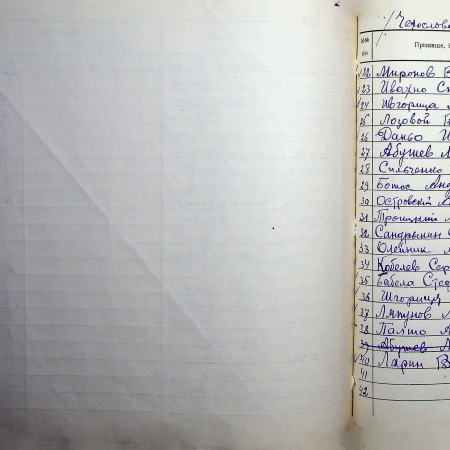 Чехослова
№№ п/п Прізвище, і
122 Миронов В
23 Ивахно Ст
24 Ивгорица
25 Лозовой В
26 Даньо И
27 Абушев А
28 Сильченко
29 Ботос Анд
30 Островский А
31 Троицкий
32 Сандрыкин
33 Олейник
34 Кобелев Сер
35 Бабела Стеф
36 Шгориця
37 Ляпунов
38 Палто А
39 Абушев А
40 Ларин В
41
42